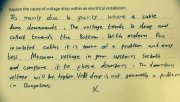 Explain the cause of voltage drop within an electrical installation.
It's mainly due to gravity where a cable
runs downwards. The voltage tends to drop and
collect towards the bottom. With modern Pvc
insulated cables it is more of a problem and easy
loss. Measure voltage in your upstairs sockets
and compare it to those downstairs. The downstairs
voltage will be higher. Volt drop is not generally a problem
in Bungalows.
X